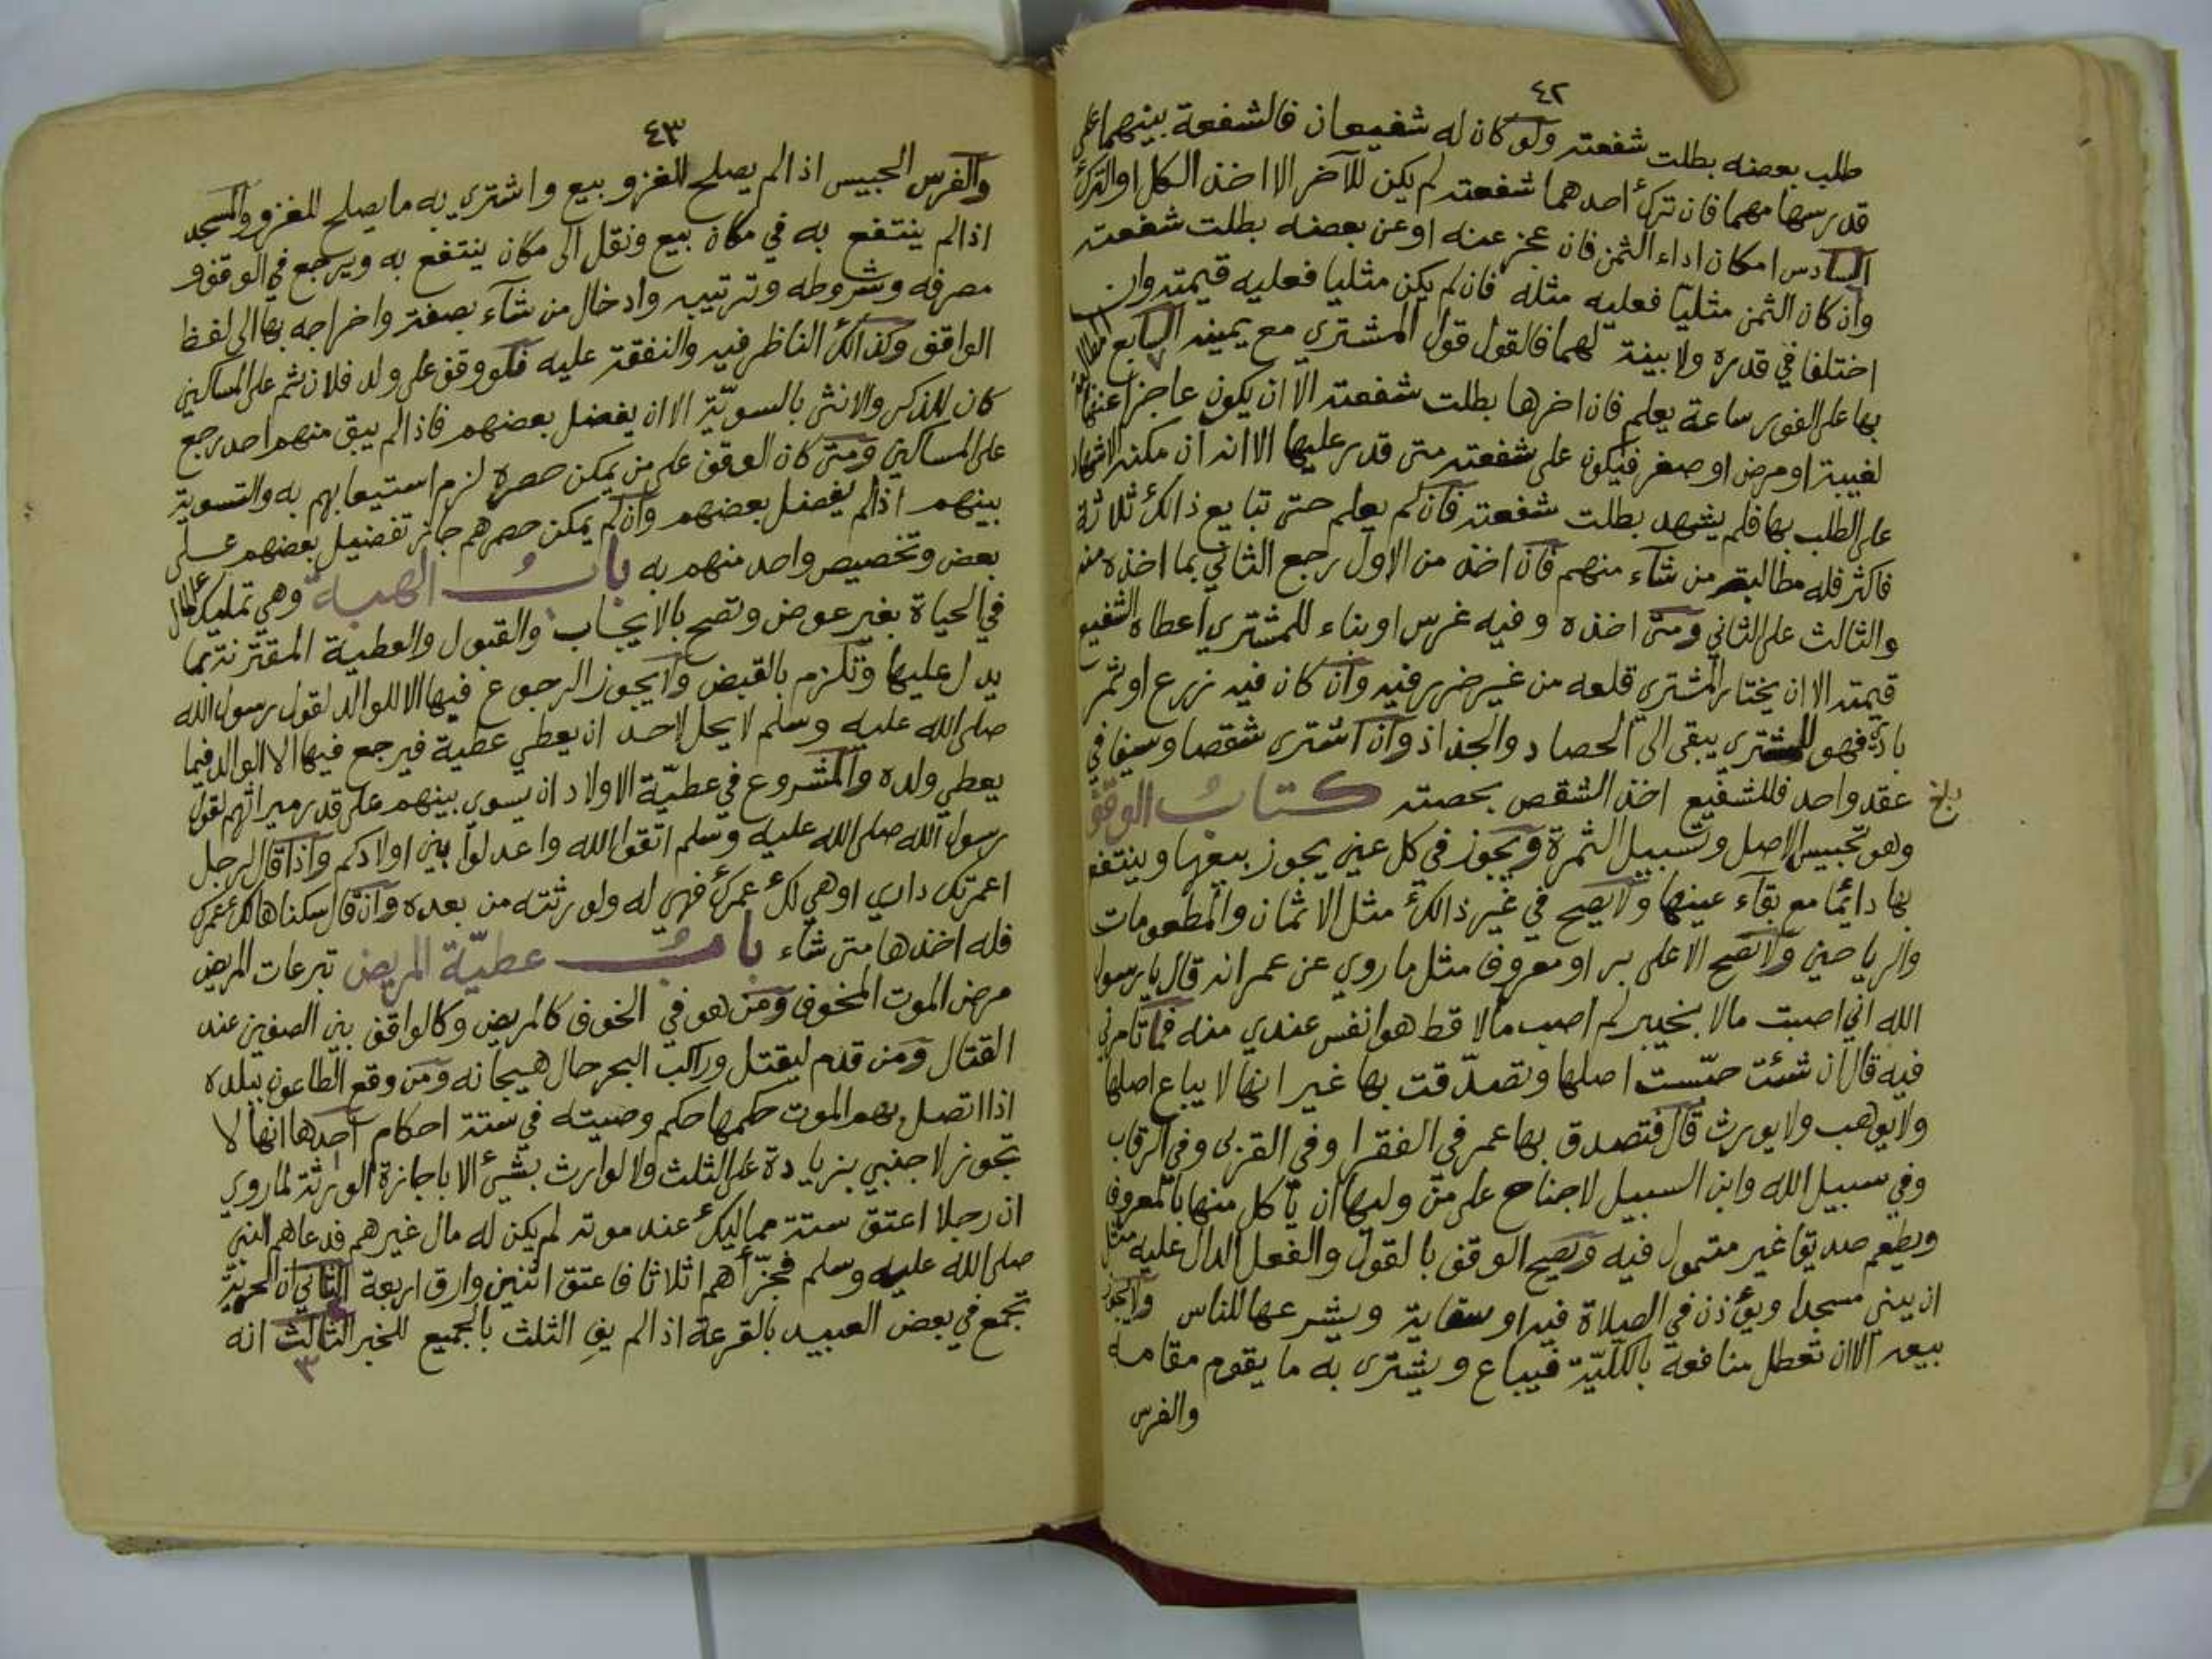 ٤٢
طلب بعضه بطلت شفعته ولو كان له شفيعان فالشفعة بينهما على
قدر سهامهما فان ترك احدهما شفعته لم يكن للآخر الا اخذ الكل او الترك
السادس امكان اداء الثمن فان عجز عنه او عن بعضه بطلت شفعته
وان كان الثمن مثليا فعليه مثله فان لم يكن مثليا فعليه قيمته وان
اختلفا في قدره ولا بينة لهما فالقول قول المشتري مع يمينه السابع المطالبة
بها على الفور ساعة يعلم فان اخرها بطلت شفعته الا ان يكون عاجزا عنها
لغيبة او مرض او صغر فيكون على شفعته متى قدر عليها الا انه ان مكنه الاشهاد
على الطلب بها فلم يشهد بطلت شفعته فان لم يعلم حتى تبايع ذالك ثلاثة
فاكثر فله مطالبة من شاء منهم فان اخذ من الاول رجع الثاني بما اخذه منه
والثالث على الثاني ومتى اخذه وفيه غرس او بناء للمشتري اعطاه الشفيع
قيمته الا ان يختار المشتري قلعه من غير ضرر فيه وان كان فيه زرع او ثمر
باد فهو للمشتري يبقى الى الحصاد والجذاذ وان اشترى شقصا وسيفا في
عقد واحد فللشفيع اخذ الشقص بحصته كتاب الوقف
بلغ
وهو تحبيس الاصل وتسبيل الثمرة ويجوز في كل عين يجوز بيعها وينتفع
بها دائما مع بقاء عينها ولا يصح في غير ذالك مثل الاثمان والمطعومات
والرياحين ولا تصح الا على بر او معروف مثل ما روي عن عمر انه قال يا رسول
الله اني اصبت مالا بخيبر لم اصب مالا قط هو انفس عندي منه فما تامرني
فيه قال ان شئت حبّست اصلها وتصدّقت بها غير انها لا يباع اصلها
ولا يوهب ولا يورث قال فتصدق بها عمر في الفقرا وفي القربى وفي الرقاب
وفي سبيل الله وابن السبيل لا جناح على من وليها ان يأكل منها بالمعروف
ويطعم صديقا غير متمول فيه ويصح الوقف بالقول والفعل الدال عليه مثل
ان يبني مسجدا ويؤذن في الصلاة فيه او سقاية ويشرعها للناس ولا يجوز
بيعه الا ان تعطل منافعه بالكلّيّة فيباع ويشترى به ما يقوم مقامه
والفرس
٤٣
والفرس الحبيس اذا لم يصلح للغزو بيع واشتري به ما يصلح للغزو والمسجد
اذا لم ينتفع به في مكان بيع ونقل الى مكان ينتفع به ويرجع في الوقف و
مصرفه وشروطه وترتيبه وادخال من شاء بصفة واخراجه بها الى لفظ
الواقف وكذالك الناظر فيه والنفقة عليه فلو وقف على ولد فلان ثم على المساكين
كان للذكر والانثى بالسويّة الا ان يفضل بعضهم فاذا لم يبق منهم احد رجع
على المساكين ومتى كان الوقف على من يمكن حصره لزم استيعابهم به والتسوية
بينهم اذا لم يفضل بعضهم وان لم يمكن حصرهم جاز تفضيل بعضهم على
بعض وتخصيص واحد منهم به باب الهبة وهي تمليك المال
في الحياة بغير عوض وتصح بالايجاب والقبول والعطية المقترنة بما
يدل عليها وتلزم بالقبض ولا يجوز الرجوع فيها الا للوالد لقول رسول الله
صلى الله عليه وسلم لا يحل لاحد ان يعطي عطية فيرجع فيها الا الوالد فيما
يعطي ولده والمشروع في عطيّة الاولاد ان يسوي بينهم على قدر ميراثهم لقول
رسول الله صلى الله عليه وسلم اتقوا الله واعدلوا بين اولادكم واذا قال لرجل
اعمرتك داري او هي لك عمرك فهي له ولورثته من بعده وان قال سكناها لك عمرك
فله اخذها متى شاء باب عطيّة المريض تبرعات المريض
مرض الموت المخوف ومن هو في الخوف كالمريض وكالواقف بين الصفين عند
القتال ومن قدم ليقتل وراكب البحر حال هيجانه ومن وقع الطاعون ببلده
اذا اتصل بهم الموت حكمها حكم وصيته في ستة احكام احدها انها لا
تجوز لاجنبي بزيادة على الثلث ولا لوارث بشئ الا باجازة الورثة لما روي
ان رجلا اعتق ستة مماليك عند موته لم يكن له مال غيرهم فدعاهم النبي
صلى الله عليه وسلم فجزّأهم اثلاثا فاعتق اثنين وارق اربعة الثاني ان الحرية
تجمع في بعض العبيد بالقرعة اذا لم يف الثلث بالجميع للخبر الثالث انه
٣